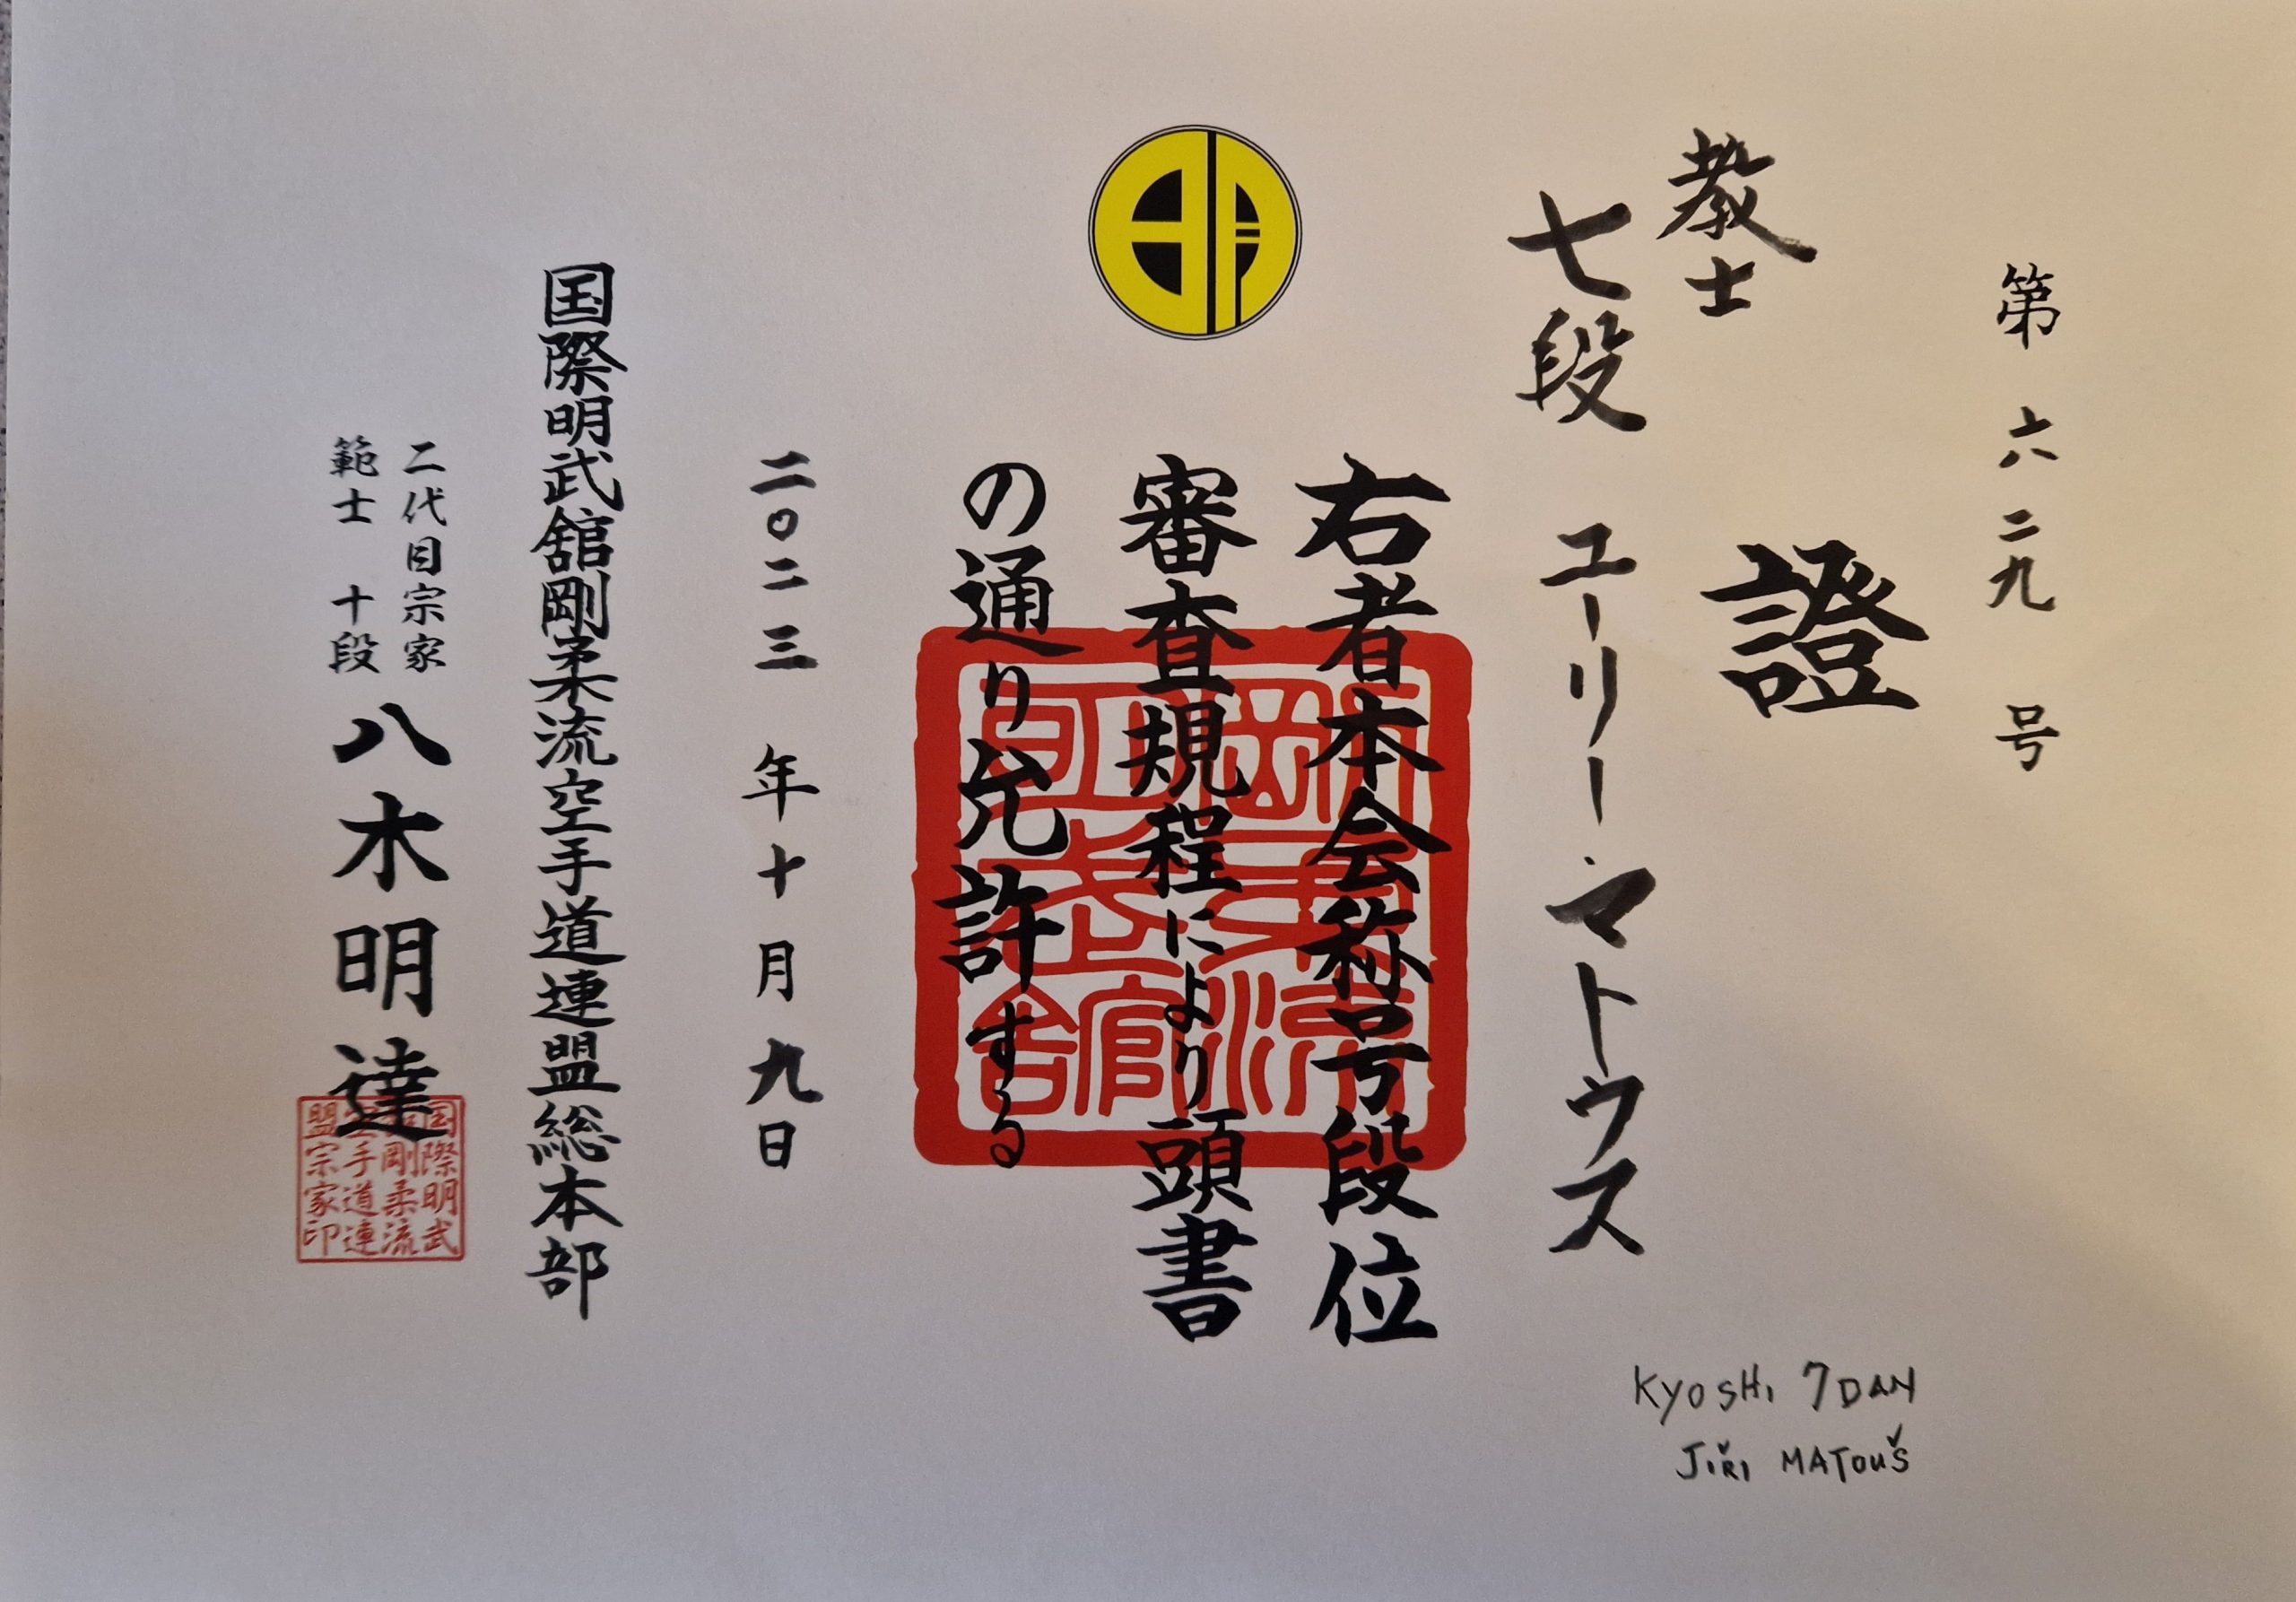 第六二九号
證
教士
七段 ユーリー・マトウス
右者本会称号段位
審査規程により頭書
の通り允許する
二〇二三年十月九日
国際明武舘剛柔流空手道連盟総本部
二代目宗家
範士 十段
八木明達
国際明武
舘剛柔流
空手道連
盟宗家印
剛柔流
明武舘
KYOSHI 7DAN
JIŘI MATOUŠ